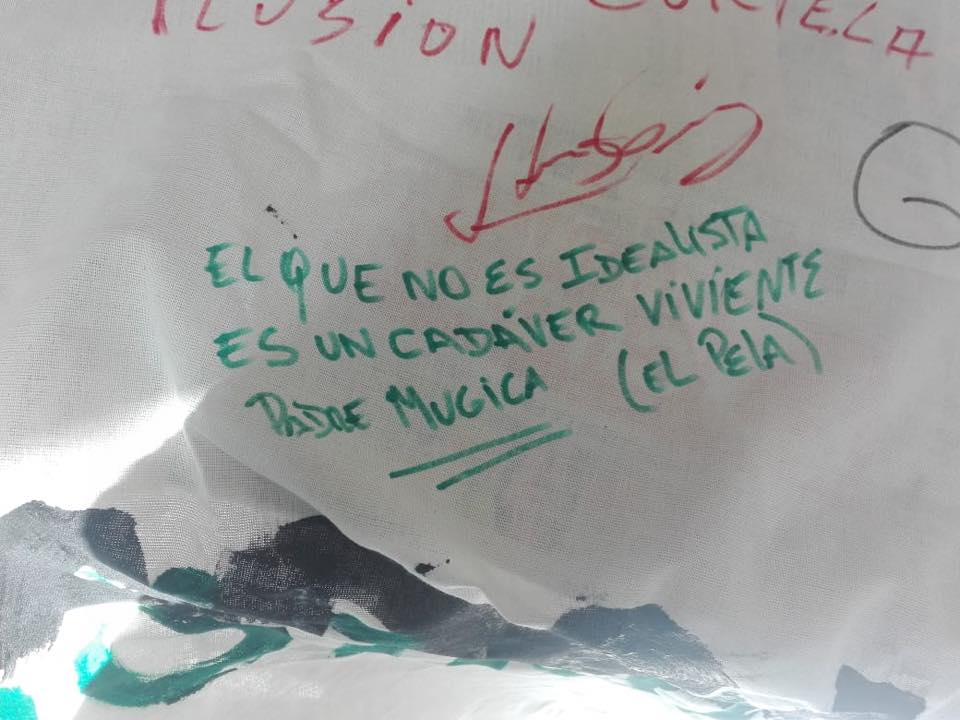 ILUSION
EL QUE NO ES IDEALISTA
ES UN CADÁVER VIVIENTE
PADRE MUGICA (EL PELA)